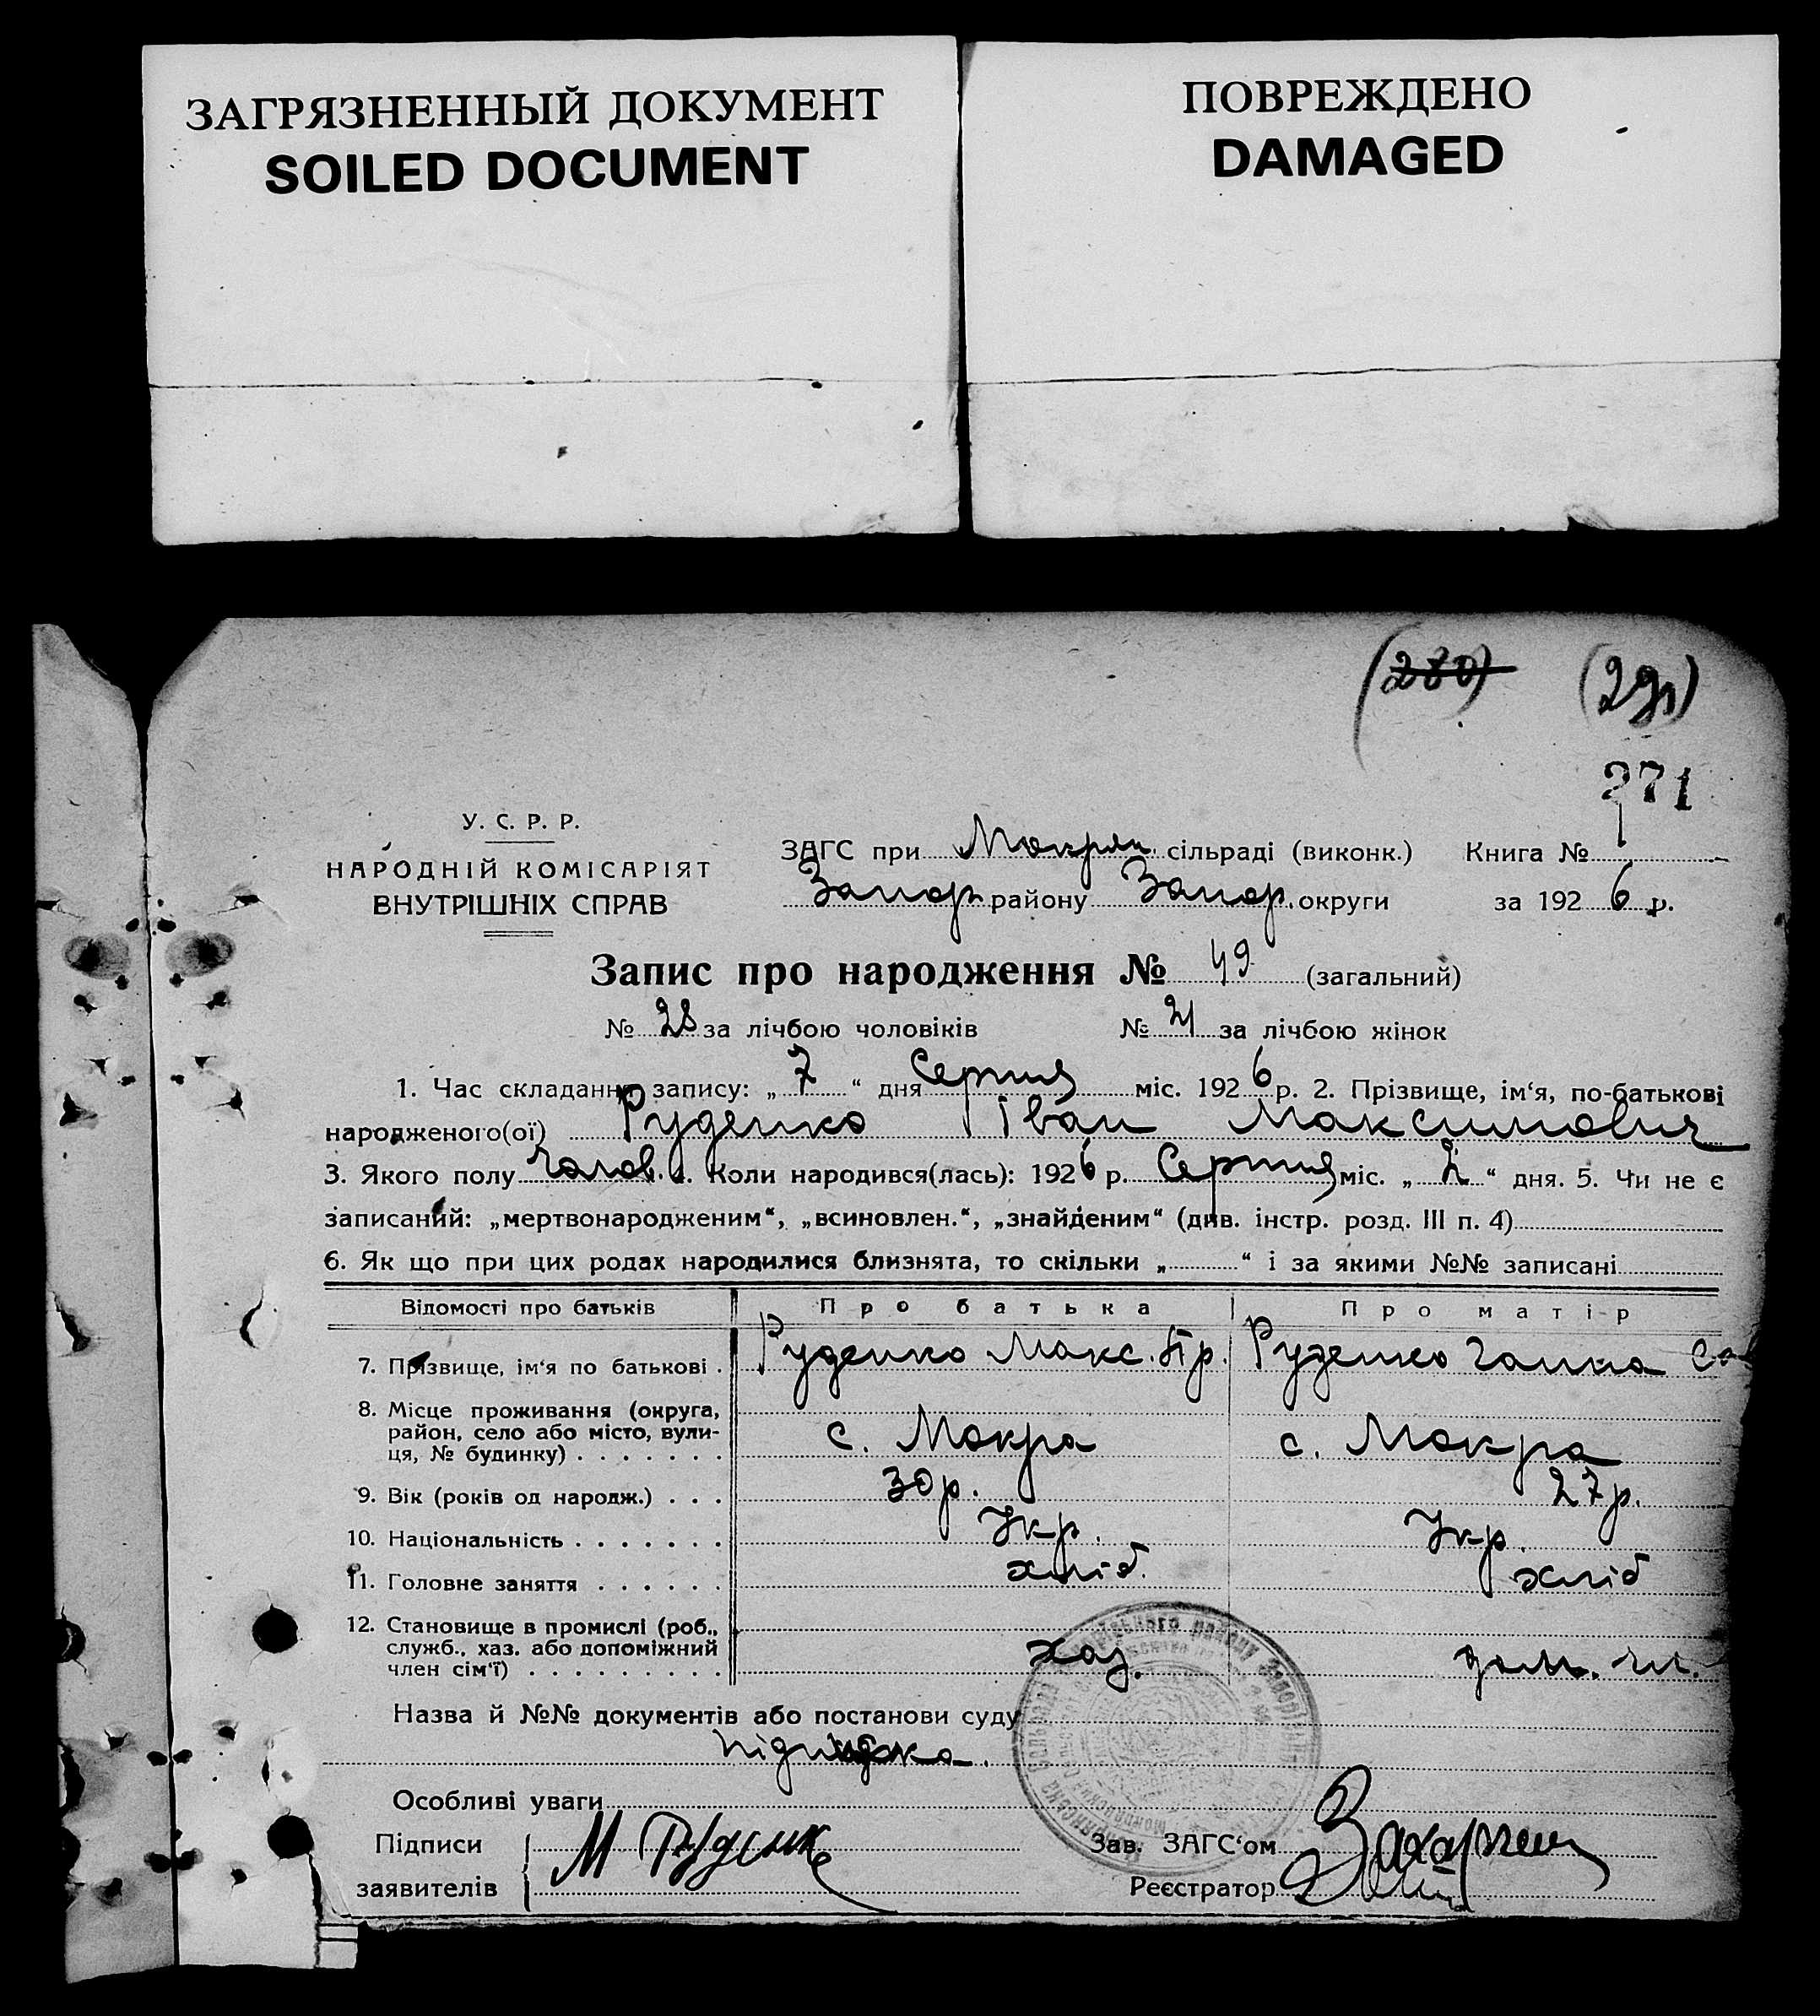 ЗАГРЯЗНЕННЫЙ ДОКУМЕНТ
SOILED DOCUMENT
ПОВРЕЖДЕНО
DAMAGED
(280) (291)
271
У. С. Р. Р.
НАРОДНІЙ КОМІСАРІЯТ
ВНУТРІШНІХ СПРАВ
ЗАГС при Мокрян. сільраді (виконк.) Книга №
Запор району Запор. округи за 1926 р.
Запис про народження № 49 (загальний)
№ 28 за лічбою чоловіків № 21 за лічбою жінок
1. Час складання запису: „7“ дня Серпня міс. 1926 р. 2. Прізвище, ім‘я, по-батькові
народженого(ої) Руденко Іван Максимович
3. Якого полу чолов. 4. Коли народився(лась): 1926 р. Серпня міс. „2“ дня. 5. Чи не є
записаний: „мертвонародженим“, „всиновлен.“, „знайденим“ (див. інстр. розд. III п. 4)
6. Як що при цих родах народилися близнята, то скільки „ “ і за якими №№ записані
Відомості про батьків Про батька Про матір
7. Прізвище, ім‘я по батькові . Руденко Макс. Пр. Руденко Ганна Сав
8. Місце проживання (округа,
район, село або місто, вули-
ця, № будинку) . . . . . . . с. Мокра с. Мокра
9. Вік (років од народж.) . . . 30 р. 27 р.
10. Національність . . . . . . . Укр. Укр.
11. Головне заняття . . . . . . хліб. хліб
12. Становище в промислі (роб.,
служб., хаз. або допоміжний
член сім‘ї) . . . . . . . . . хаз. дом. чл.
Назва й №№ документів або постанови суду
підписка.
Особливі уваги
Підписи М Руденк Зав. ЗАГС‘ом
заявителів Реєстратор